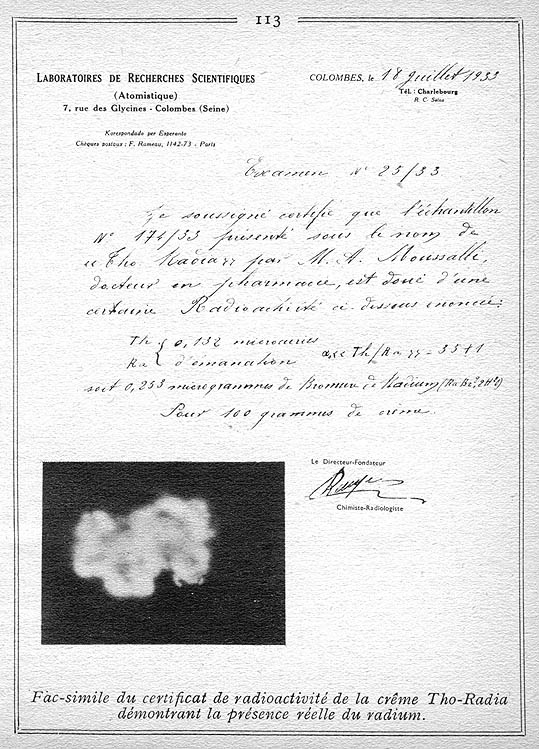 113
LABORATOIRES DE RECHERCHES SCIENTIFIQUES
(Atomistique)
7, rue des Glycines - Colombes (Seine)
Korespondado per Esperanto
Chèques postaux : F. Rameau, 1142-73 - Paris
COLOMBES, le 18 Juillet 1933
Tél. : Charlebourg
R. C. Seine
Examen N° 25/33
Je soussigné certifie que l'échantillon
N° 174/33 présenté sous le nom de
"Tho-Radia" par M. A. Moussalli,
docteur en pharmacie, est doué d'une
certaine Radioactivité ci-dessous énoncée:
Th { 0,132 microcuries
Ra { d'émanation Th/Ra = 35+1
soit 0,253 microgrammes de Bromure de Radium
Pour 100 grammes de crème.
Le Directeur-Fondateur
Chimiste-Radiologiste
Fac-simile du certificat de radioactivité de la crême Tho-Radia
démontrant la présence réelle du radium.